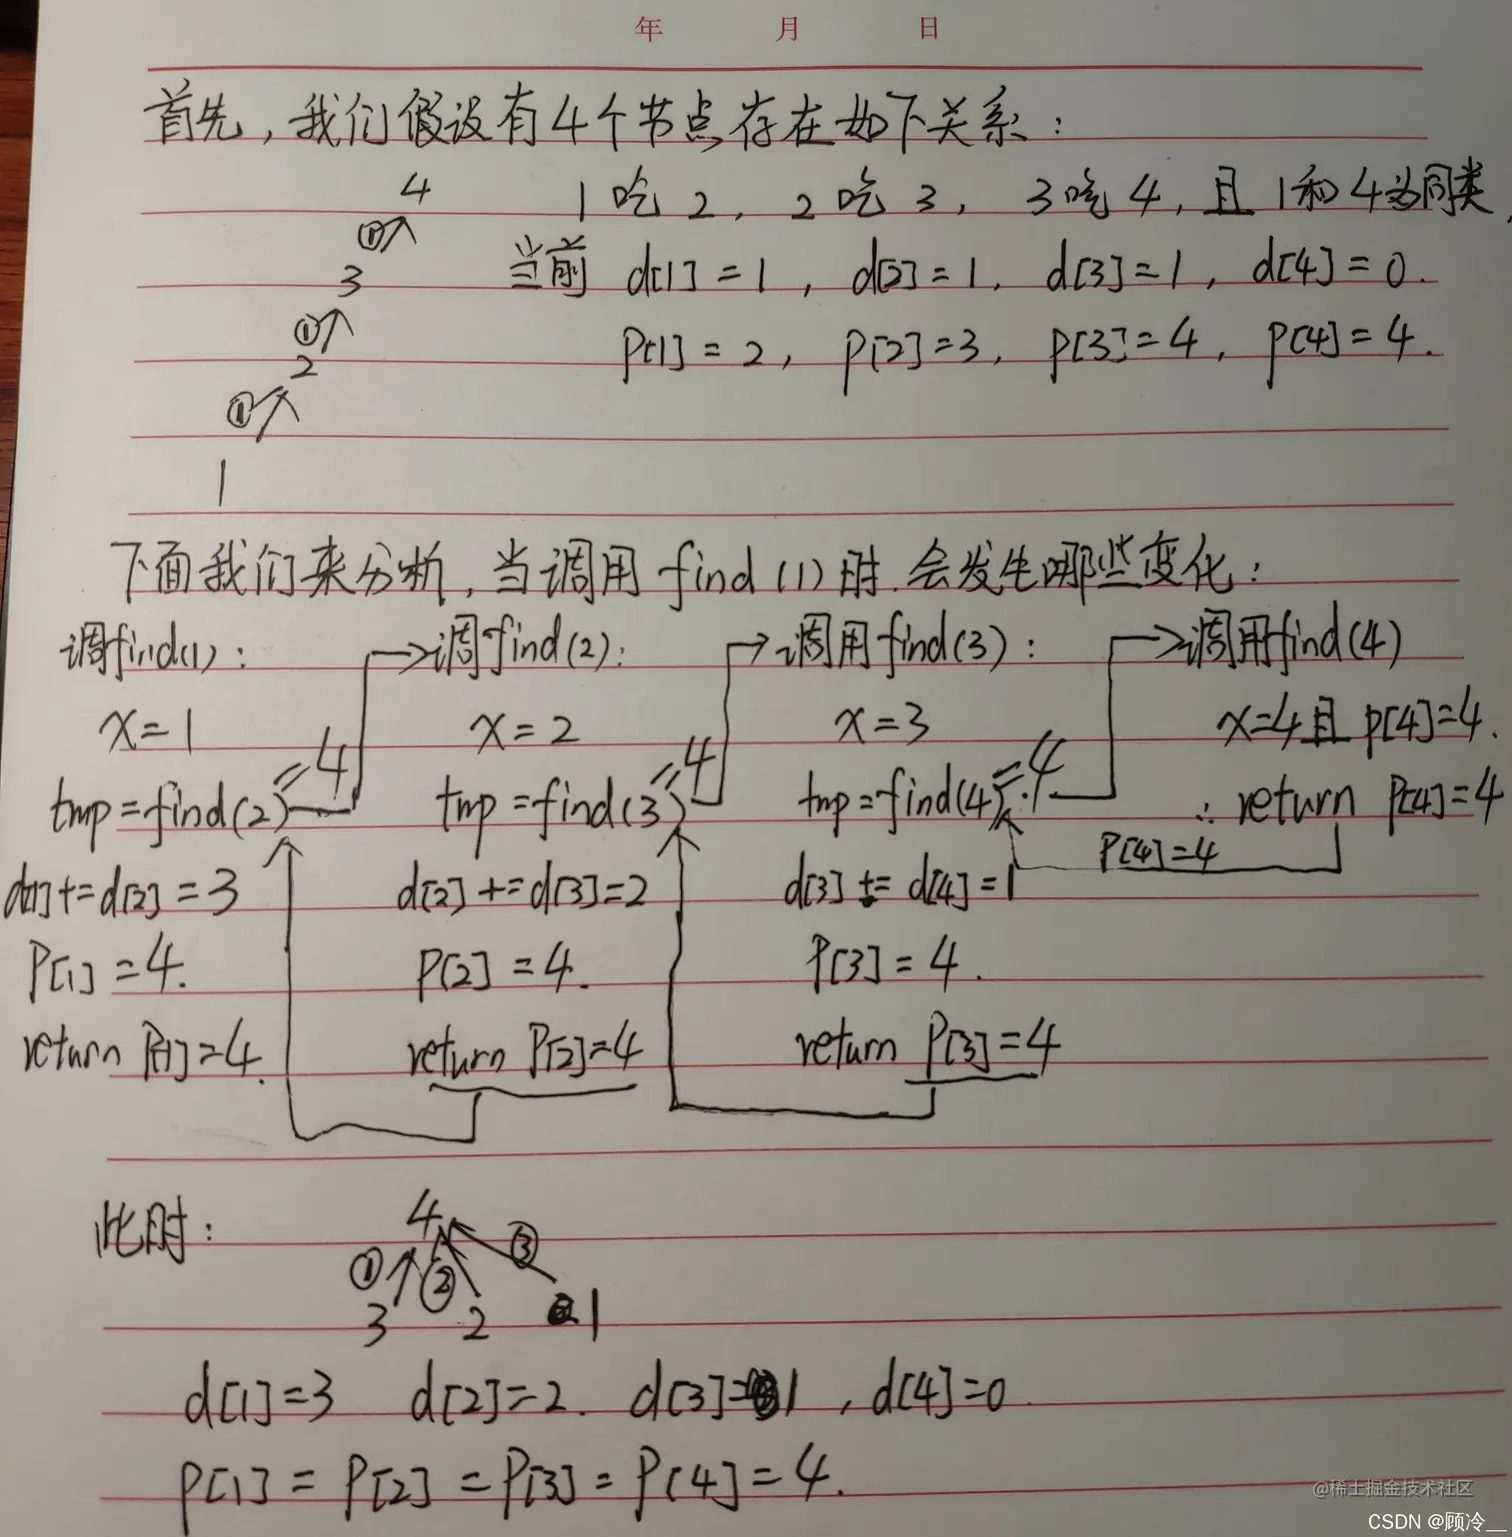 年 月 日
首先，我们假设有4个节点存在如下关系：
4 1吃2，2吃3，3吃4，且1和4为同类，
①
3 当前 d[1]=1，d[2]=1，d[3]=1，d[4]=0．
①
2 p[1]=2，p[2]=3，p[3]=4，p[4]=4．
①
1
下面我们来分析，当调用find(1)时，会发生哪些变化：
调find(1)： 调find(2)： 调用find(3)： 调用find(4)
x=1 x=2 x=3 x=4且p[4]=4．
tmp=find(2)=4 tmp=find(3)=4 tmp=find(4)=4 ∴return p[4]=4
p[4]=4
d[1]+=d[2]=3 d[2]+=d[3]=2 d[3]+=d[4]=1
p[1]=4． p[2]=4． p[3]=4．
return p[1]=4． return p[2]=4 return p[3]=4
此时：
4
① ② ③
3 2 1
d[1]=3 d[2]=2． d[3]=1，d[4]=0．
p[1]=p[2]=p[3]=p[4]=4．
@稀土掘金技术社区
CSDN @顾冷__